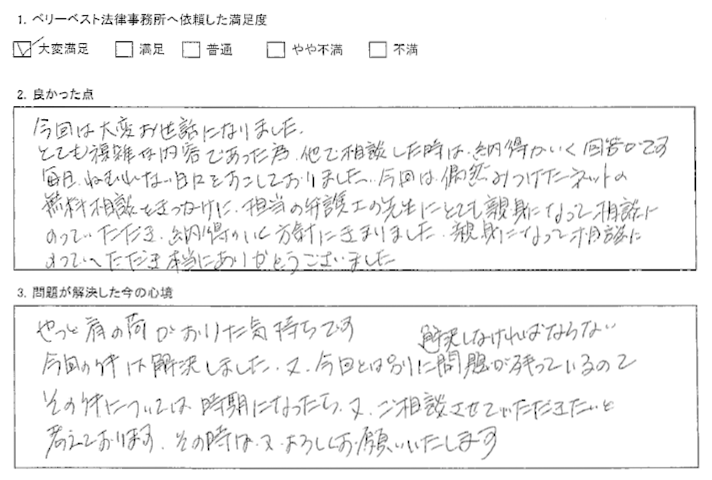 1. ベリーベスト法律事務所へ依頼した満足度
☑ 大変満足 ☐ 満足 ☐ 普通 ☐ やや不満 ☐ 不満
2. 良かった点
今回は大変お世話になりました。
とても複雑な内容であった為、他で相談した時は、納得がいく回答がです
毎日、ねむれない日々をおこしておりました。今回は、偶然みつけたネットの
無料相談をきっかけに、担当の弁護士の先生にとても親身になって相談に
のっていただき、納得のいく方針にきまりました。親身になって相談に
のっていただき本当にありがとうございました
3. 問題が解決した今の心境
やっと肩の荷がおりた気持ちです
解決しなければならない
今回の件は解決しました。又、今回とは別に問題が残っているので
その件については、時期になったら、又、ご相談させていただきたいと
考えております。その時は、又、よろしくお願いいたします